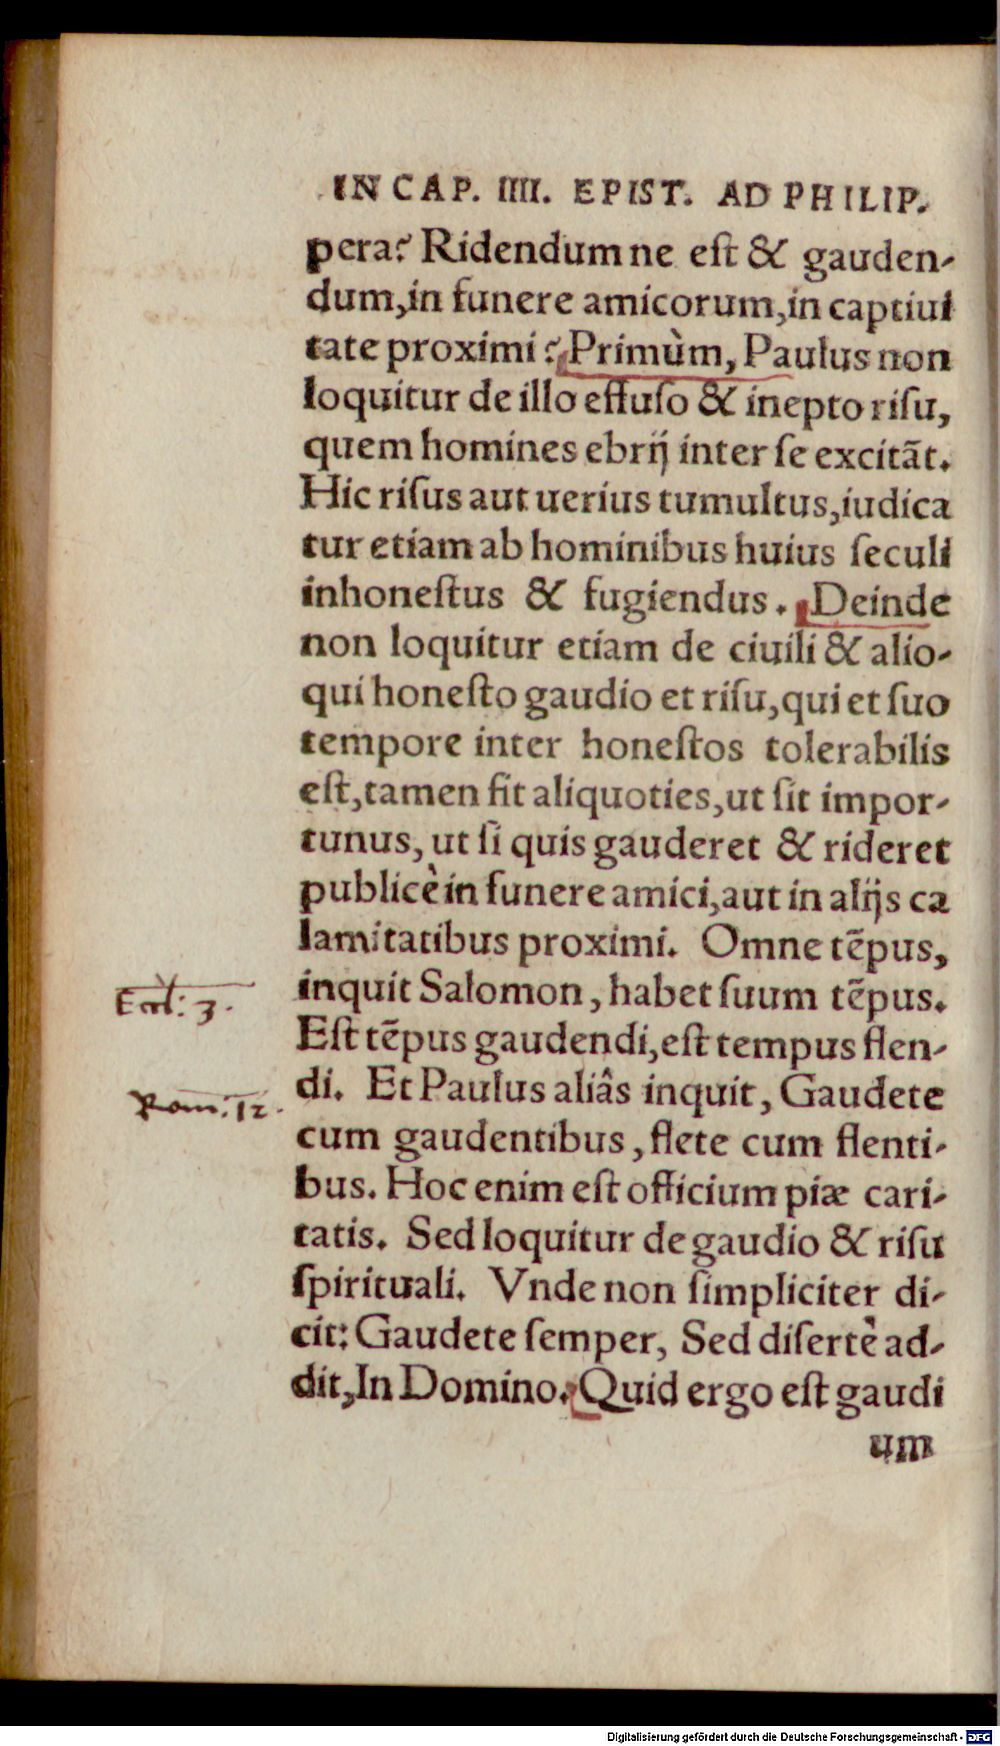 IN CAP. IIII. EPIST. AD PHILIP.
pera? Ridendum ne eſt & gauden-
dum, in funere amicorum, in captiui
tate proximi? Primùm, Paulus non
loquitur de illo effuſo & inepto riſu,
quem homines ebrij inter ſe excitãt.
Hic riſus aut uerius tumultus, iudica
tur etiam ab hominibus huius ſeculi
inhoneſtus & fugiendus. Deinde
non loquitur etiam de ciuili & alio-
qui honeſto gaudio et riſu, qui et ſuo
tempore inter honeſtos tolerabilis
eſt, tamen fit aliquoties, ut ſit impor-
tunus, ut ſi quis gauderet & rideret
publicè in funere amici, aut in alijs ca
lamitatibus proximi. Omne tẽpus,
inquit Salomon, habet ſuum tẽpus.
Eccl: 3.
Eſt tẽpus gaudendi, eſt tempus flen-
di. Et Paulus aliâs inquit, Gaudete
Rom: 12.
cum gaudentibus, flete cum flenti-
bus. Hoc enim eſt officium piæ cari-
tatis. Sed loquitur de gaudio & riſu
ſpirituali. Vnde non ſimpliciter di-
cit: Gaudete ſemper, Sed diſertè ad-
dit, In Domino. Quid ergo eſt gaudi
um
Digitalisierung gefördert durch die Deutsche Forschungsgemeinschaft - DFG